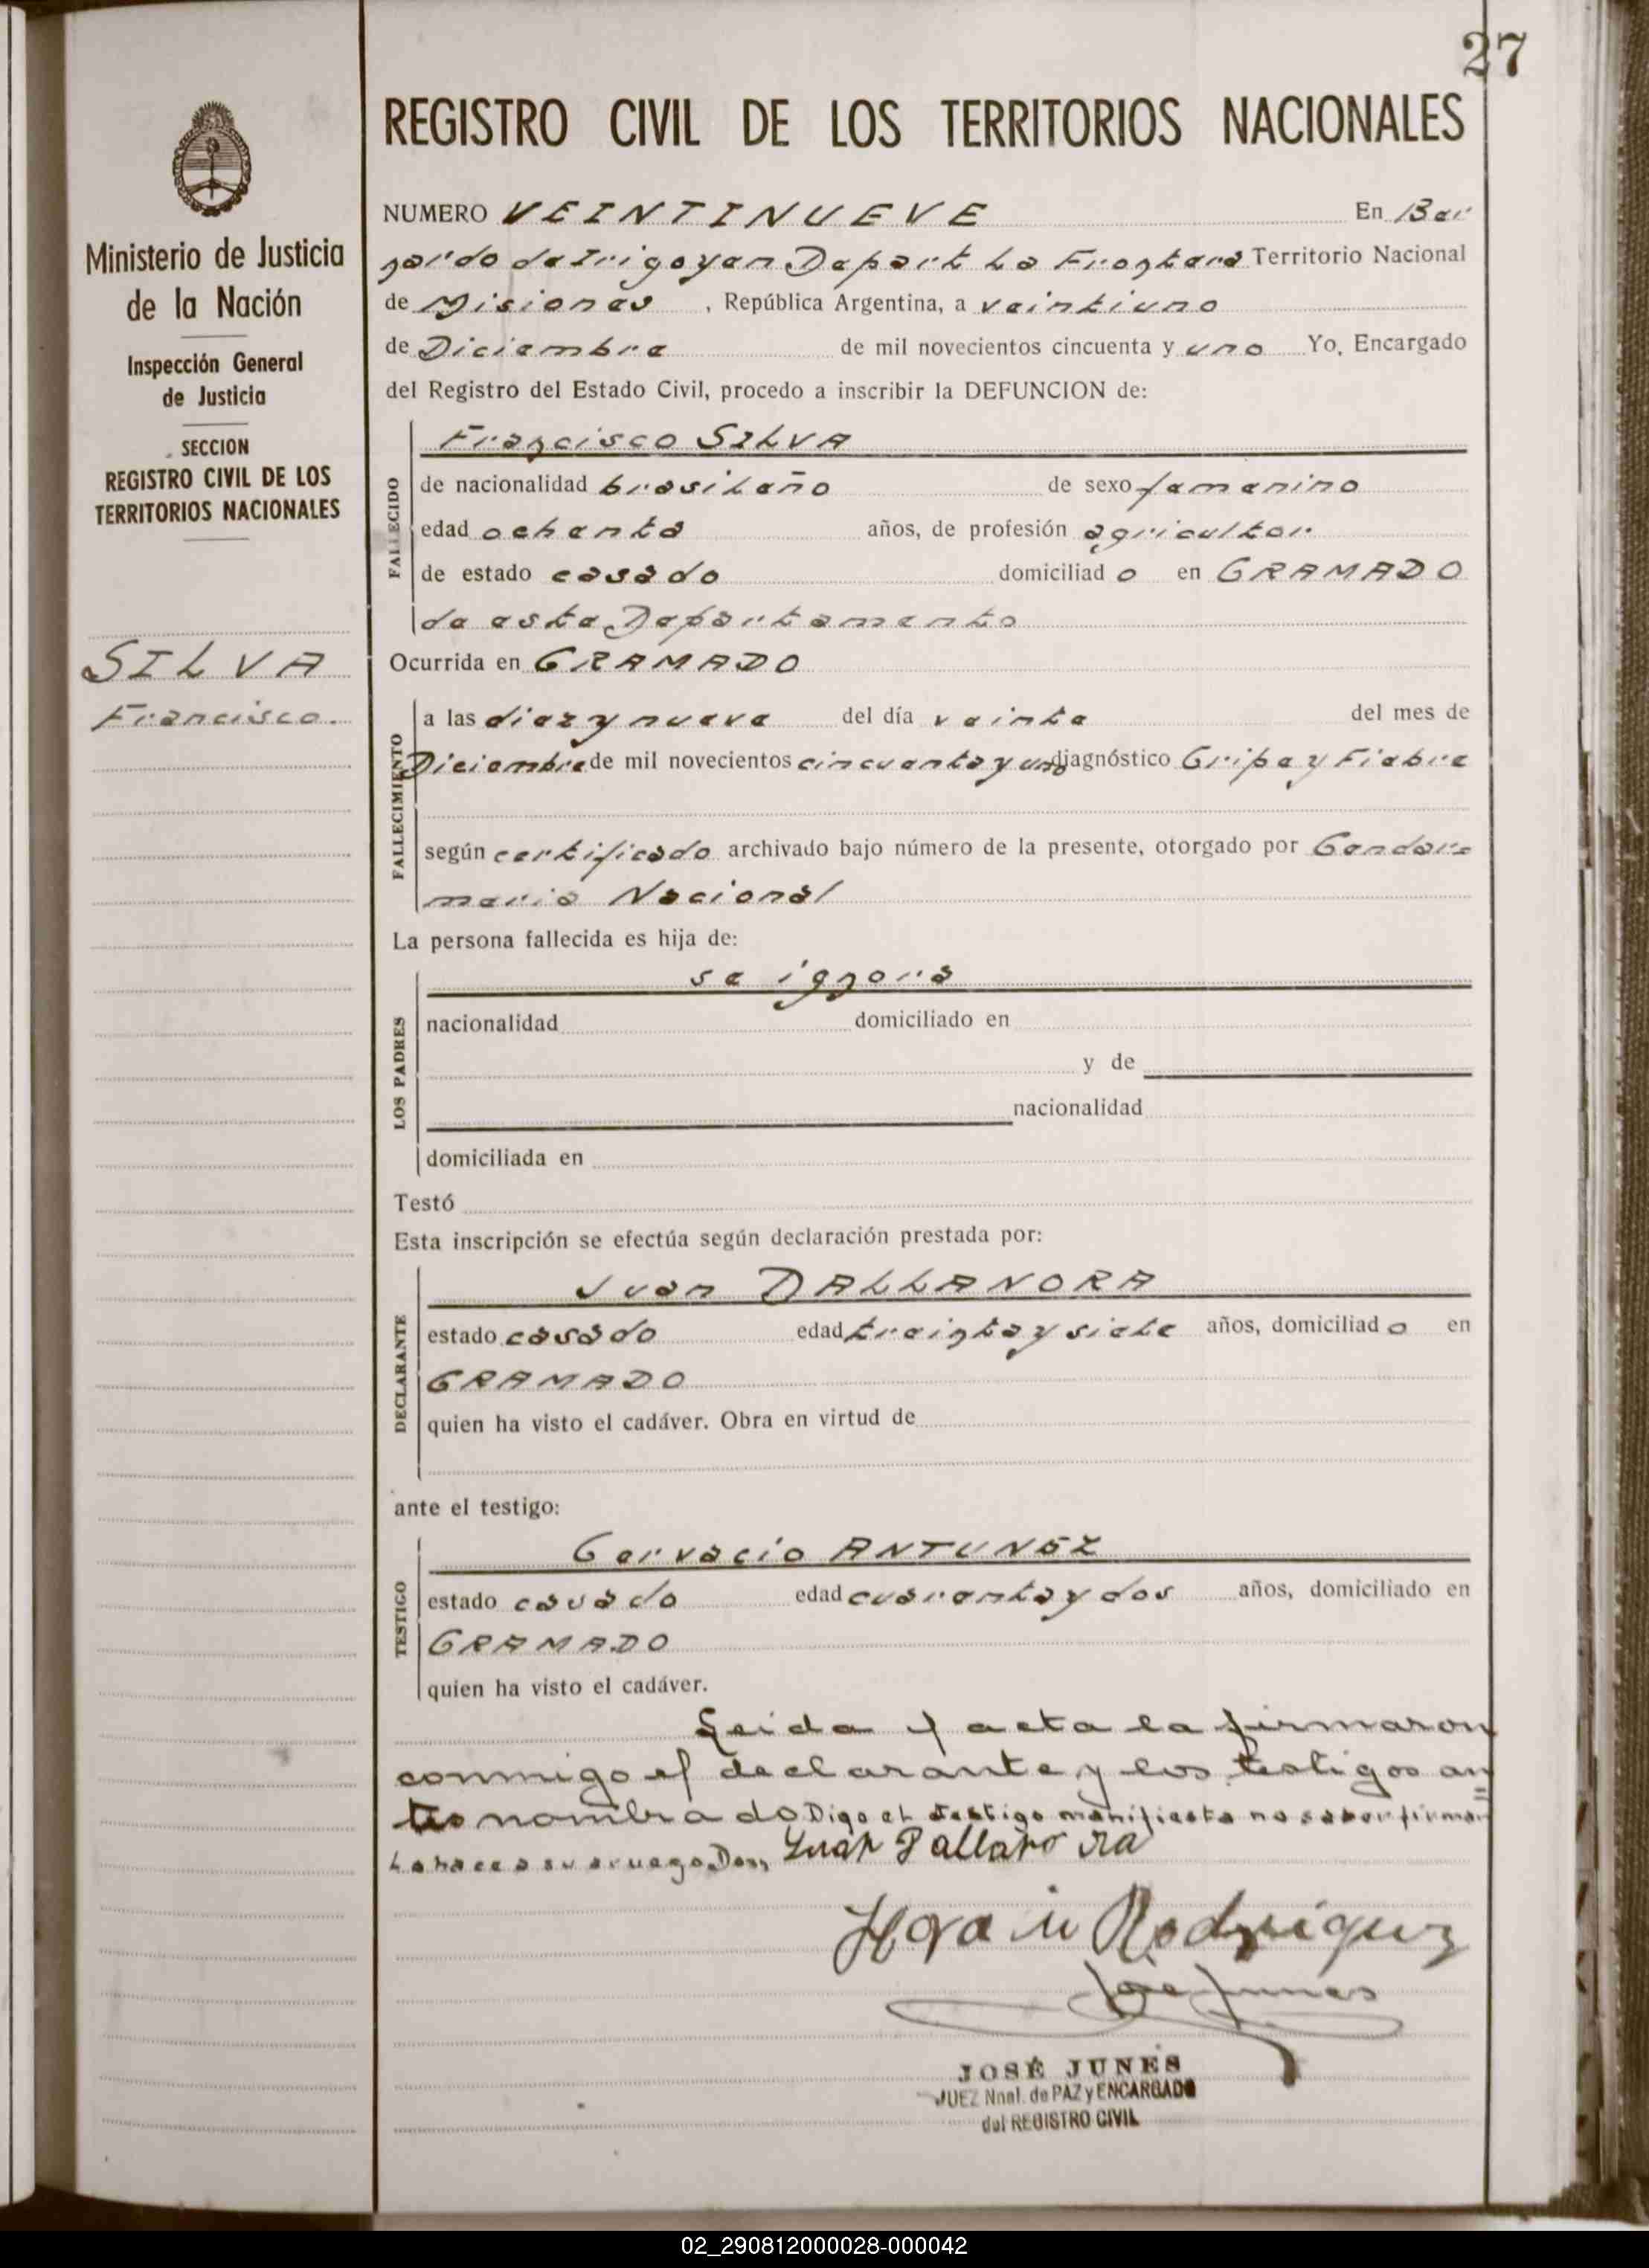 27
REGISTRO CIVIL DE LOS TERRITORIOS NACIONALES
Ministerio de Justicia
de la Nación
Inspección General
de Justicia
SECCION
REGISTRO CIVIL DE LOS
TERRITORIOS NACIONALES
SILVA
Francisco.
NUMERO VEINTINUEVE En Ber
nardo de Irigoyen Depart La Frontera Territorio Nacional
de Misiones, República Argentina, a veintiuno
de Diciembre de mil novecientos cincuenta y uno Yo, Encargado
del Registro del Estado Civil, procedo a inscribir la DEFUNCION de:
FALLECIDO
Francisco SILVA
de nacionalidad brasileño de sexo femenino
edad ochenta años, de profesión agricultor
de estado casado domiciliad o en GRAMADO
de este Departamento
Ocurrida en GRAMADO
FALLECIMIENTO
a las diez y nueve del día veinte del mes de
Diciembre de mil novecientos cincuenta y uno diagnóstico Gripe y Fiebre
según certificado archivado bajo número de la presente, otorgado por Gendar=
meria Nacional
La persona fallecida es hija de:
LOS PADRES
se ignora
nacionalidad domiciliado en
y de
nacionalidad
domiciliada en
Testó
Esta inscripción se efectúa según declaración prestada por:
DECLARANTE
Juan DALLANORA
estado casado edad treinta y siete años, domiciliad o en
GRAMADO
quien ha visto el cadáver. Obra en virtud de
ante el testigo:
TESTIGO
Gervacio ANTUNEZ
estado casado edad cuarenta y dos años, domiciliado en
GRAMADO
quien ha visto el cadáver.
Leida y acta la firmaron
conmigo el declarante y los testigos an
tes nombrado Digo el testigo manifiesta no saber firmar
Lo hace a su ruego Don,
Rodriguez
Jose Junes
JOSÉ JUNES
JUEZ Nnal. de PAZ y ENCARGADO
del REGISTRO CIVIL
02_290812000028-000042